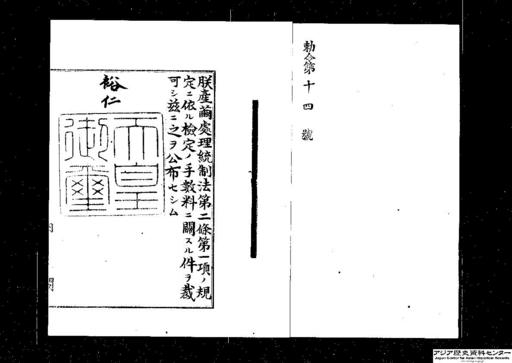 勅令第十四號
朕產繭處理統制法第二條第一項ノ規
定ニ依ル檢定ノ手數料ニ關スル件ヲ裁
可シ茲ニ之ヲ公布セシム
裕仁
天皇
御璽
内閣
アジア歴史資料センター
Japan Center for Asian Historical Records